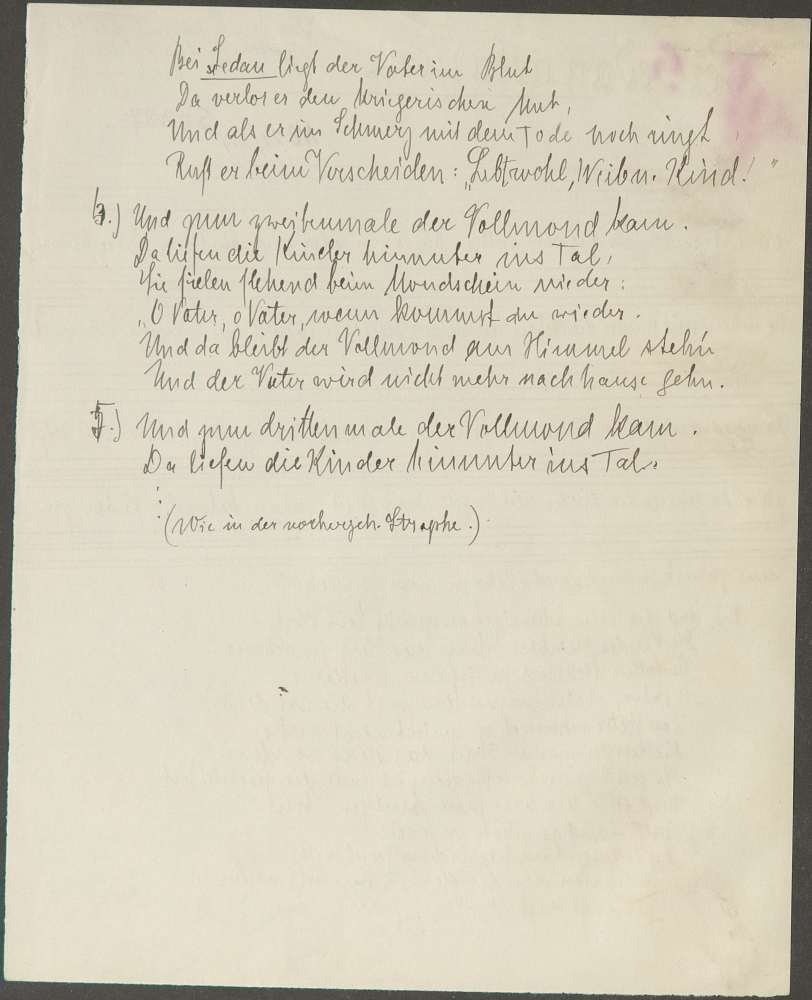 Bei Sedan liegt der Vater im Blut
Da verlor er den kriegerischen Mut,
Und als er im Schmerz mit dem Tode noch ringt,
Ruft er beim Verscheiden: „Lebtwohl, Weib u. Kind!"
4.) Und zum zweitenmale der Vollmond kam.
Da liefen die Kinder hinunter ins Tal,
Sie fielen flehend beim Mondschein nieder:
„O Vater, o Vater, wenn kommst du wieder.
Und da bleibt der Vollmond am Himmel stehn
Und der Vater wird nicht mehr nach hause gehn.
5.) Und zum drittenmale der Vollmond kam.
Da liefen die Kinder hinunter ins Tal.
⋮
(Wie in der vorhergeh. Strophe.)